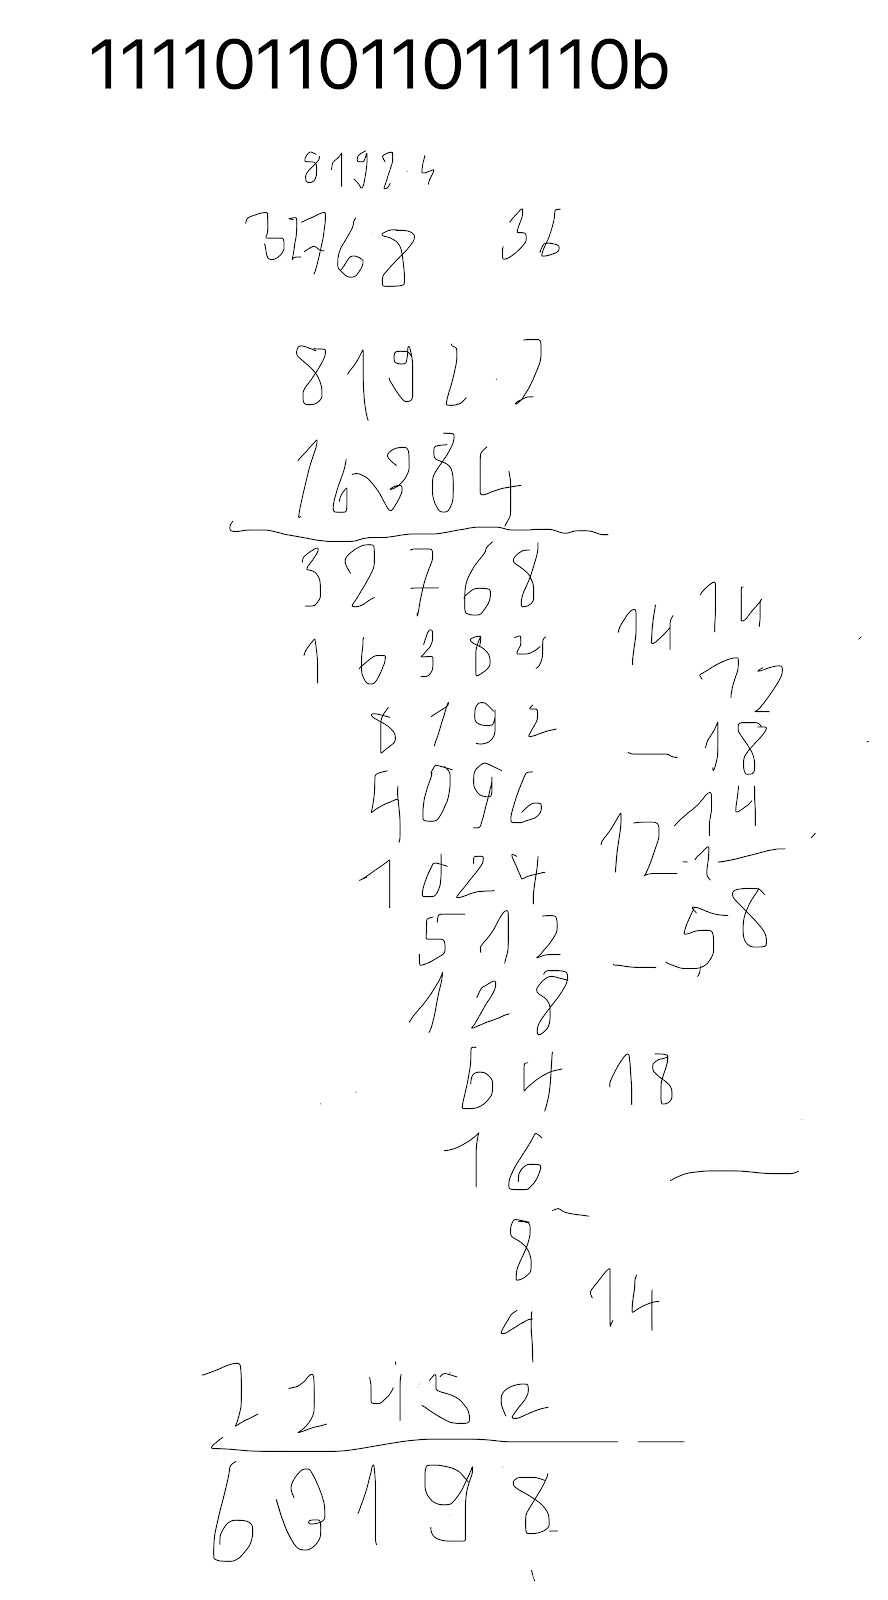 1111011011011110b
8192.4
32768 36
8192.2
16384
32768
16384 14 14
12
8192 - 18
4096 14
1024 12 -1
512 - 58
128
64 18
16
8 -
4 14
2 2 4 5 2
63198